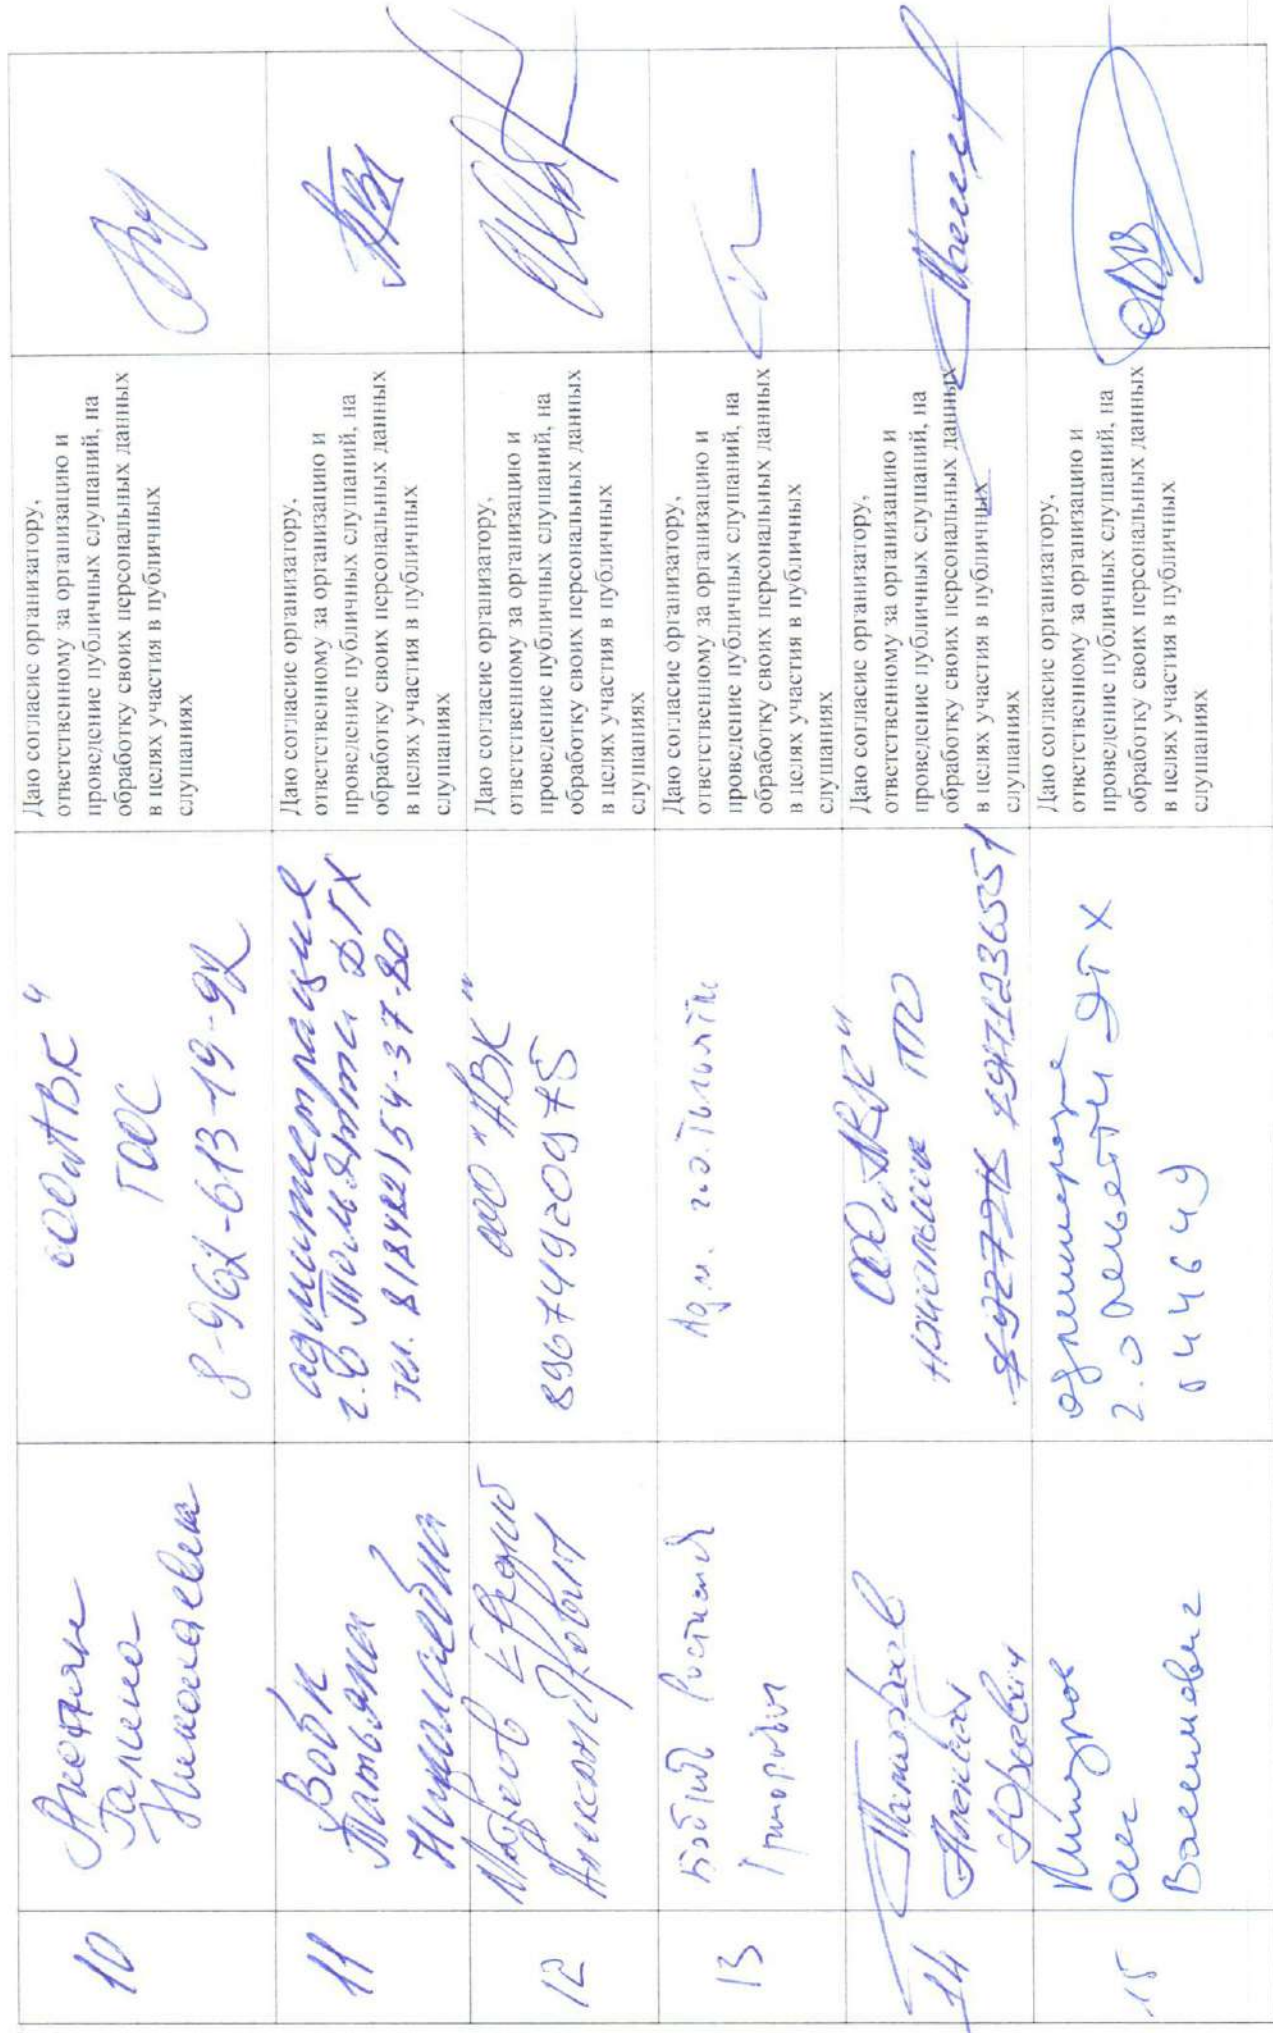 10
Галина
Николаевна
ТООС
8-962-613-19-92
Даю согласие организатору,
ответственному за организацию и
проведение публичных слушаний, на
обработку своих персональных данных
в целях участия в публичных
слушаниях
11
Вовк
Татьяна
Николаевна
администрация
г.о Тольятти ДГХ
тел. 8(8482) 54-37-80
Даю согласие организатору,
ответственному за организацию и
проведение публичных слушаний, на
обработку своих персональных данных
в целях участия в публичных
слушаниях
12
Александрович
ООО "АВК"
89674920975
Даю согласие организатору,
ответственному за организацию и
проведение публичных слушаний, на
обработку своих персональных данных
в целях участия в публичных
слушаниях
13
Григорьевич
Адм. г.о. Тольятти
Даю согласие организатору,
ответственному за организацию и
проведение публичных слушаний, на
обработку своих персональных данных
в целях участия в публичных
слушаниях
14
Юрьевич
ООО "АВК"
начальник ПТО
Даю согласие организатору,
ответственному за организацию и
проведение публичных слушаний, на
обработку своих персональных данных
в целях участия в публичных
слушаниях
15
Олег
г.о Тольятти ДГХ
544649
Даю согласие организатору,
ответственному за организацию и
проведение публичных слушаний, на
обработку своих персональных данных
в целях участия в публичных
слушаниях